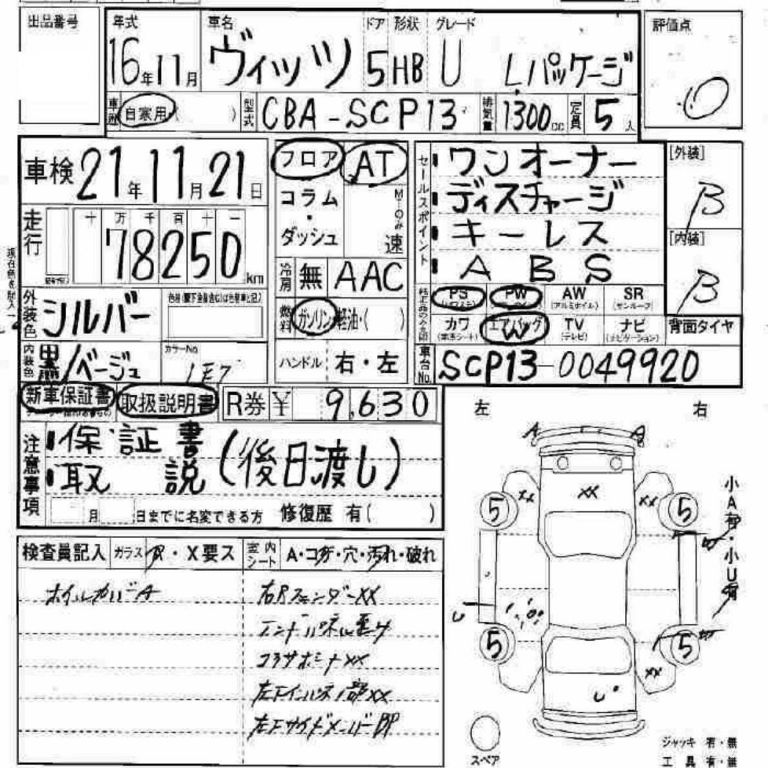 出品番号
年式 車名 ドア 形状 グレード 評価点
16年11月 ヴィッツ 5 HB U Lパッケージ
車歴 自家用( ) 型式 CBA-SCP13 排気量 1300cc 定員 5人
車検 21年11月21日
フロア AT
コラム・ダッシュ Mㇳのみ 速
セールスポイント
ワンオーナー
ディスチャージ
キーレス
ABS
[外装]
B
[内装]
B
走行 十万千百十一
78250 km
冷房 無 AAC
燃料 ガソリン・軽油・( )
ハンドル 右・左
外装色 シルバー
内装色 黒/ベージュ カラーNo 1E7
PS PW AW SR
(アルミホイル) (サンルーフ)
カワ エアバッグ W TV ナビ 背面タイヤ
(本革シート) (テレビ) (ナビゲーション)
車台No. SCP13-0049920
新車保証書 取扱説明書 R券 ¥ 9,630
注意事項
保証書
取説 (後日渡し)
月 日までに名変できる方 修復歴 有( )
検査員記入 ガラス R・X要ス 室内シート A・コゲ・穴・汚れ・破れ
ホイルカバーA
右Rフェンダーxx
コアサポートxx
左 右
A A
xx xx xx
5 5
小A有・小U有
U
5 5
xx
U
スペア
ジャッキ 有・無
工具 有・無